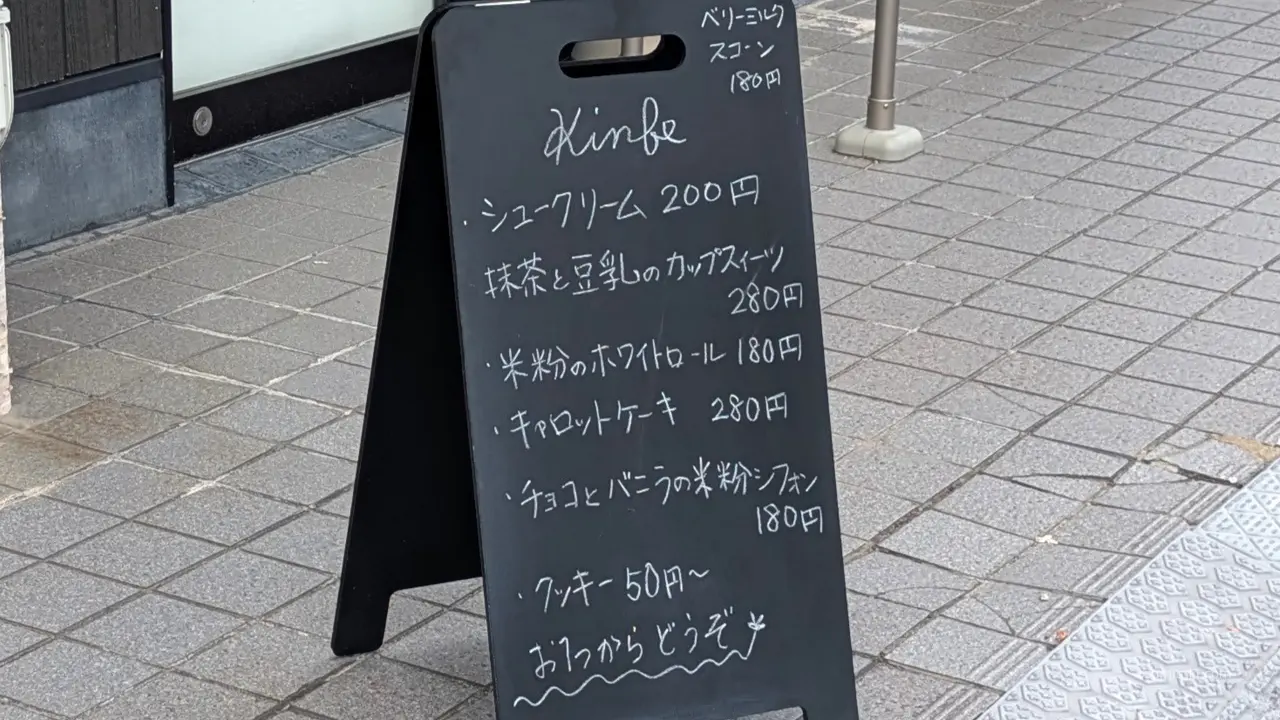 ベリーミルク
スコーン
180円
Kinbe
・シュークリーム 200円
抹茶と豆乳のカップスイーツ
280円
・米粉のホワイトロール 180円
・キャロットケーキ 280円
・チョコとバニラの米粉シフォン
180円
・クッキー 50円〜
お1つからどうぞ